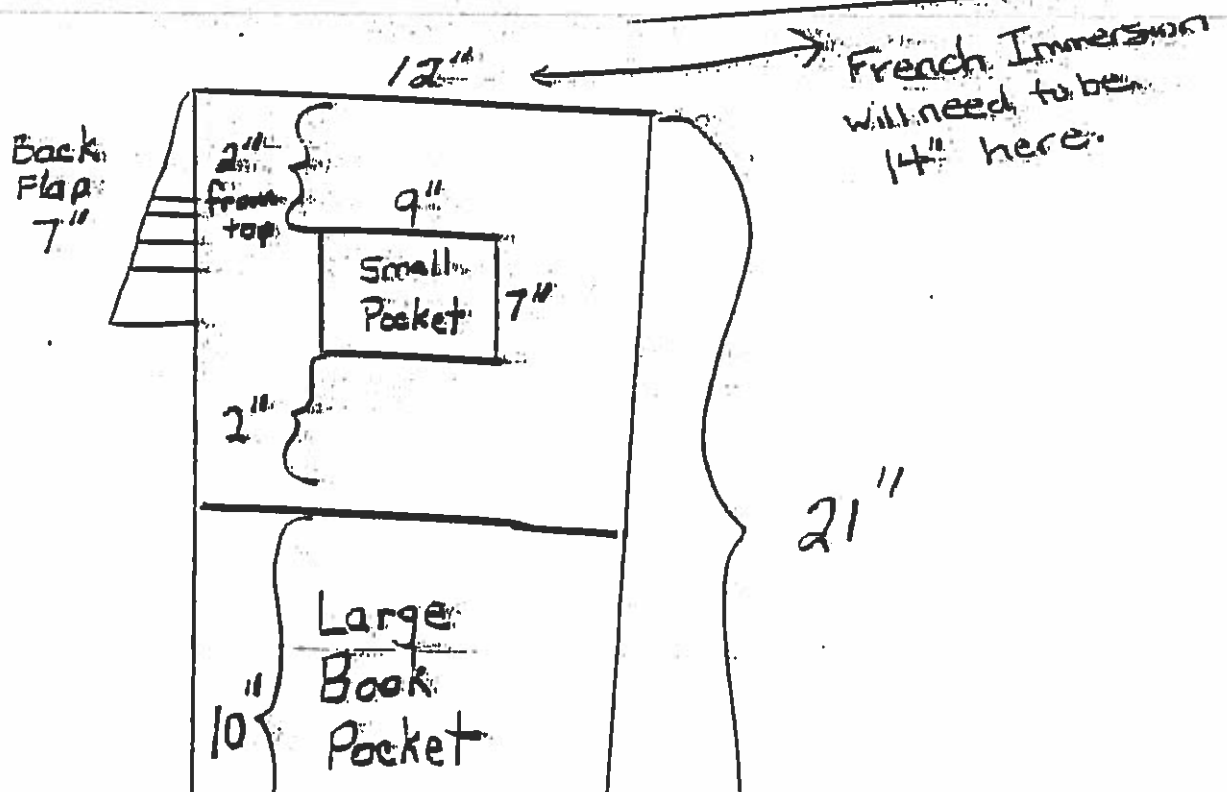 12"
French Immersion
will need to be
14" here.
Back
Flap
7"
2"
from
top
9"
Small
Pocket
7"
2"
21"
Large
Book
Pocket
10"